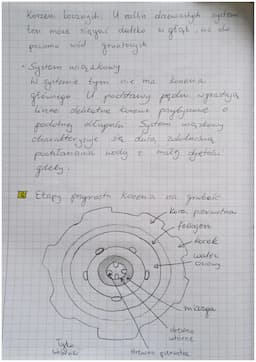 korzeni bocznych. U roślin drzewiastych system
ten może sięgać daleko w głąb, aż do
poziomu wód gruntowych
• System wiązkowy
W systemie tym nie ma korzenia
głównego. U podstawy pędu wyrastają
liczne delikatne korzenie przybyszowe o
podobnej długości. System wiązkowy
charakteryzuje się dużą zdolnością
pochłaniania wody z małej objętości
gleby.
Etapy przyrostu korzenia na grubość
kora pierwotna
fellogen
korek
walec osiowy
miazga
drewno wtórne
drewno pierwotne
łyko wtórne